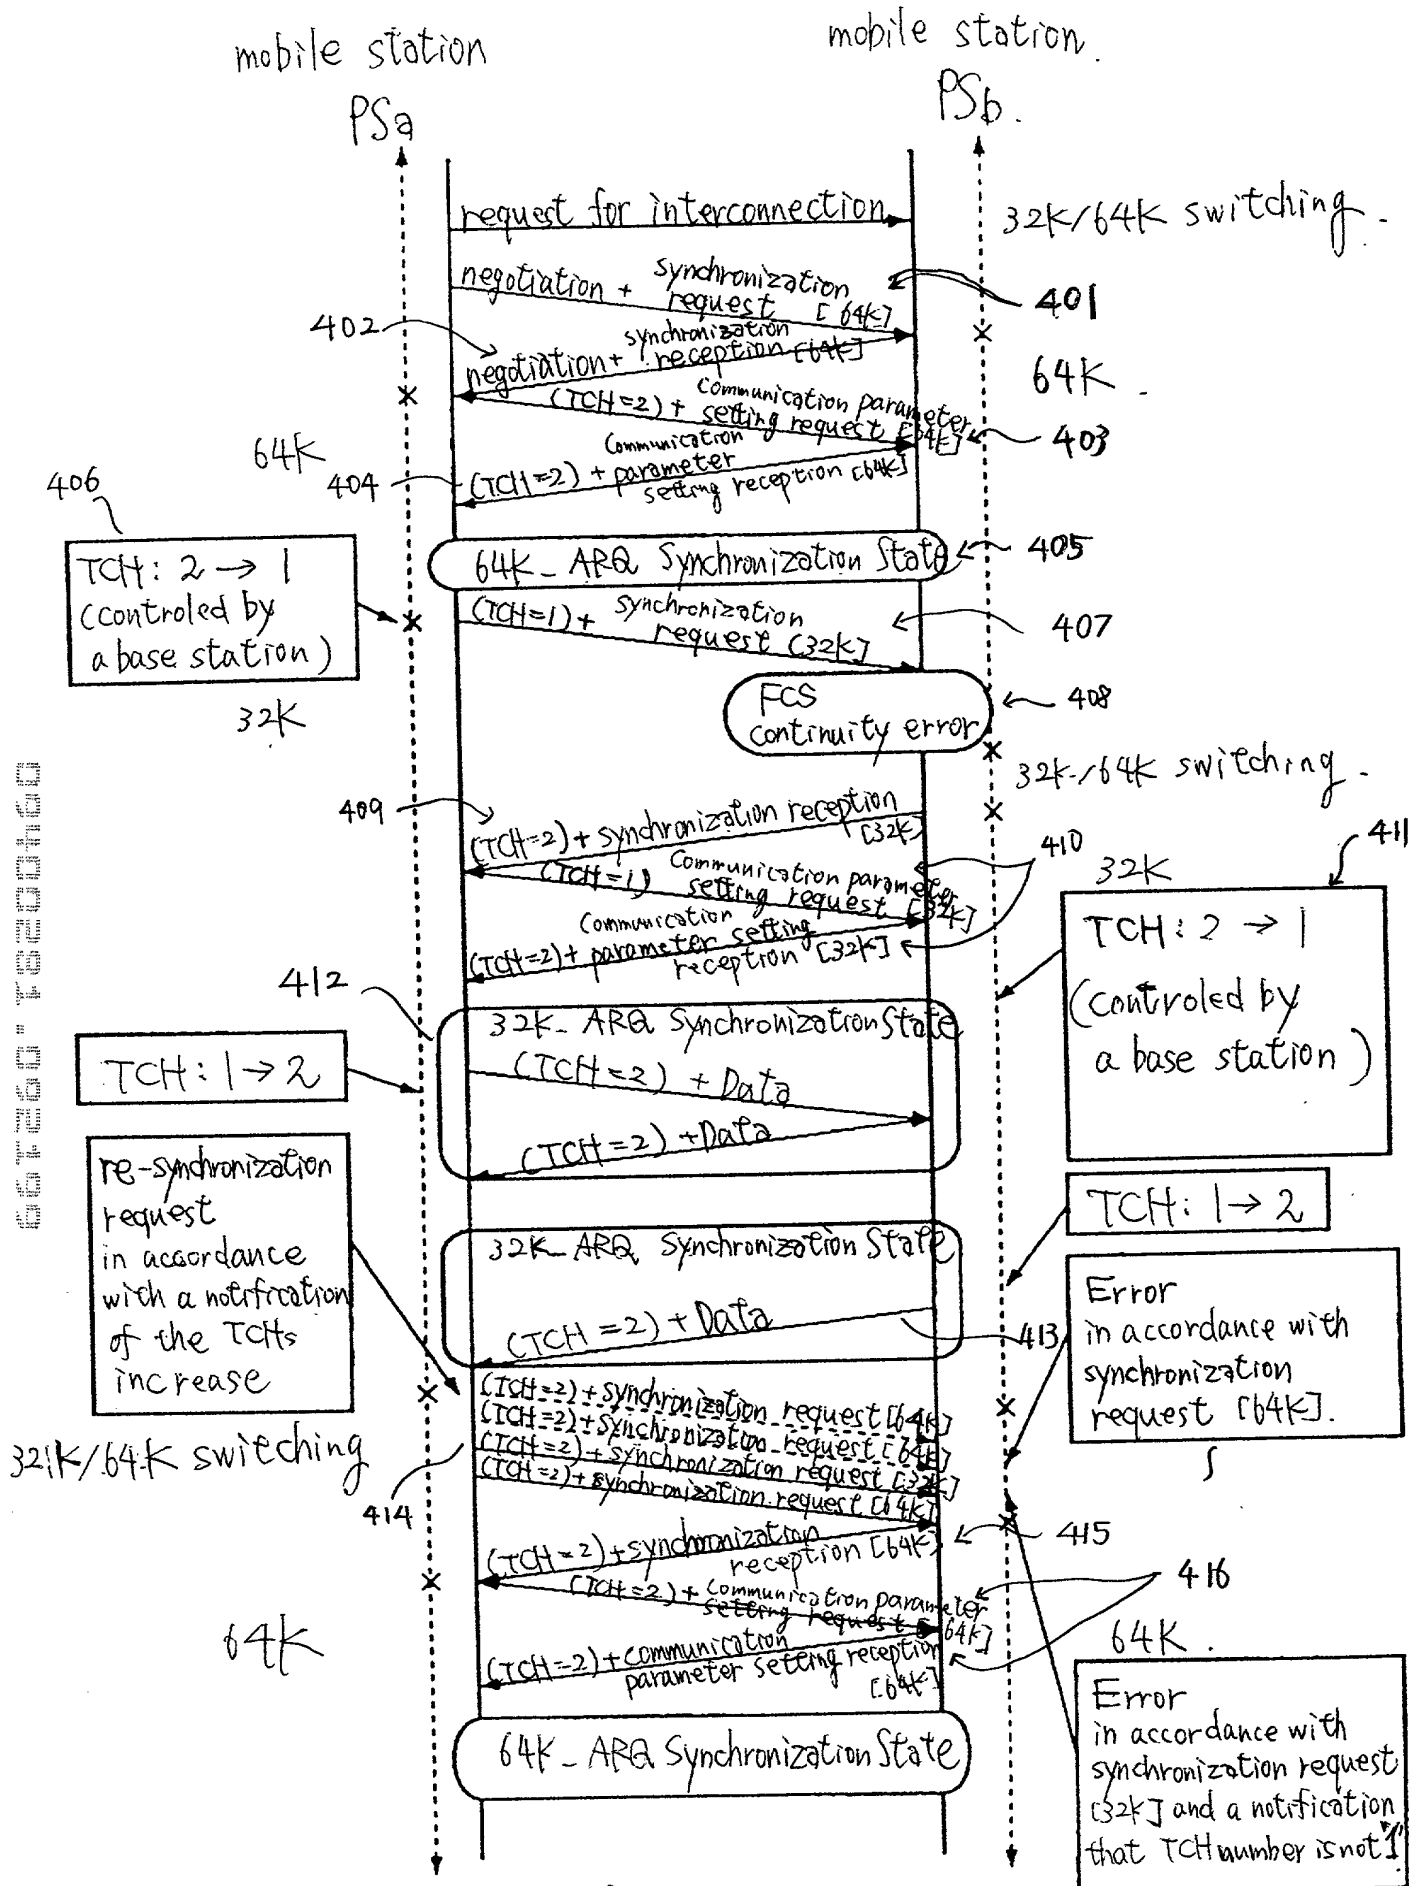 mobile station
mobile station.
PSa
PSb.
request for interconnection
32K/64K switching.
negotiation + synchronization
request [64K]
401
402
negotiation + synchronization
reception [64K]
64K.
(TCH=2) + Communication parameter
setting request [64K]
403
64K
404
(TCH=2) + Communication
parameter
setting reception [64K]
406
TCH: 2 → 1
(controled by
a base station)
64K_ ARQ Synchronization State
405
(TCH=1) + synchronization
request [32K]
407
32K
FCS
continuity error
408
32K/64K switching.
409
(TCH=2) + synchronization reception
[32K]
410
(TCH=1) Communication parameter
setting request [32K]
(TCH=2) + Communication
parameter setting
reception [32K]
32K
411
TCH: 2 → 1
(controled by
a base station)
412
32K_ ARQ Synchronization State
TCH: 1 → 2
(TCH=2) + Data
(TCH=2) + Data
re-synchronization
request
in accordance
with a notification
of the TCHs
increase
TCH: 1 → 2
32K_ ARQ Synchronization State
(TCH=2) + Data
413
Error
in accordance with
synchronization
request [64K].
(TCH=2) + synchronization request [64K]
(TCH=2) + synchronization request [64K]
(TCH=2) + synchronization request [32K]
(TCH=2) + synchronization request [64K]
32K/64K switching
414
(TCH=2) + synchronization
reception [64K]
415
(TCH=2) + Communication parameter
setting request [64K]
416
64K
64K.
(TCH=2) + communication
parameter setting reception
[64K]
64K_ ARQ Synchronization State
Error
in accordance with
synchronization request
[32K] and a notification
that TCH number is not "1"